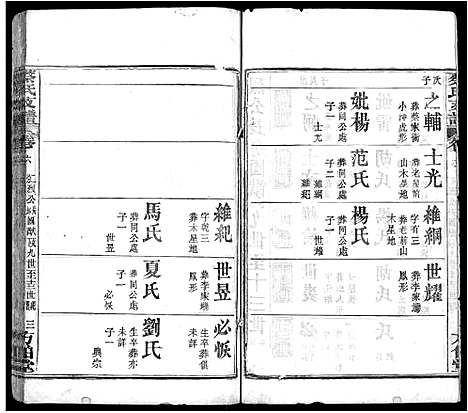 次子
之輔
葬蔡家衝
小沖虎形
妣楊氏
葬同公處
子一
士光
士光
葬老屋前
山木星地
范氏
葬同公處
子二
維綱
維紀
維綱
字有三
葬老前山
木星地
楊氏
葬同公處
子一
世耀
世耀
葬李家塆
鳳形
維紀
字乾三
葬木星地
馬氏
葬同公處
子一
世昱
世昱
葬李家塆
鳳形
夏氏
葬同公處
子一
必恢
必恢
生卒葬俱
未詳
劉氏
生卒葬亦
未詳
典宗
蔡氏支譜
卷六
三